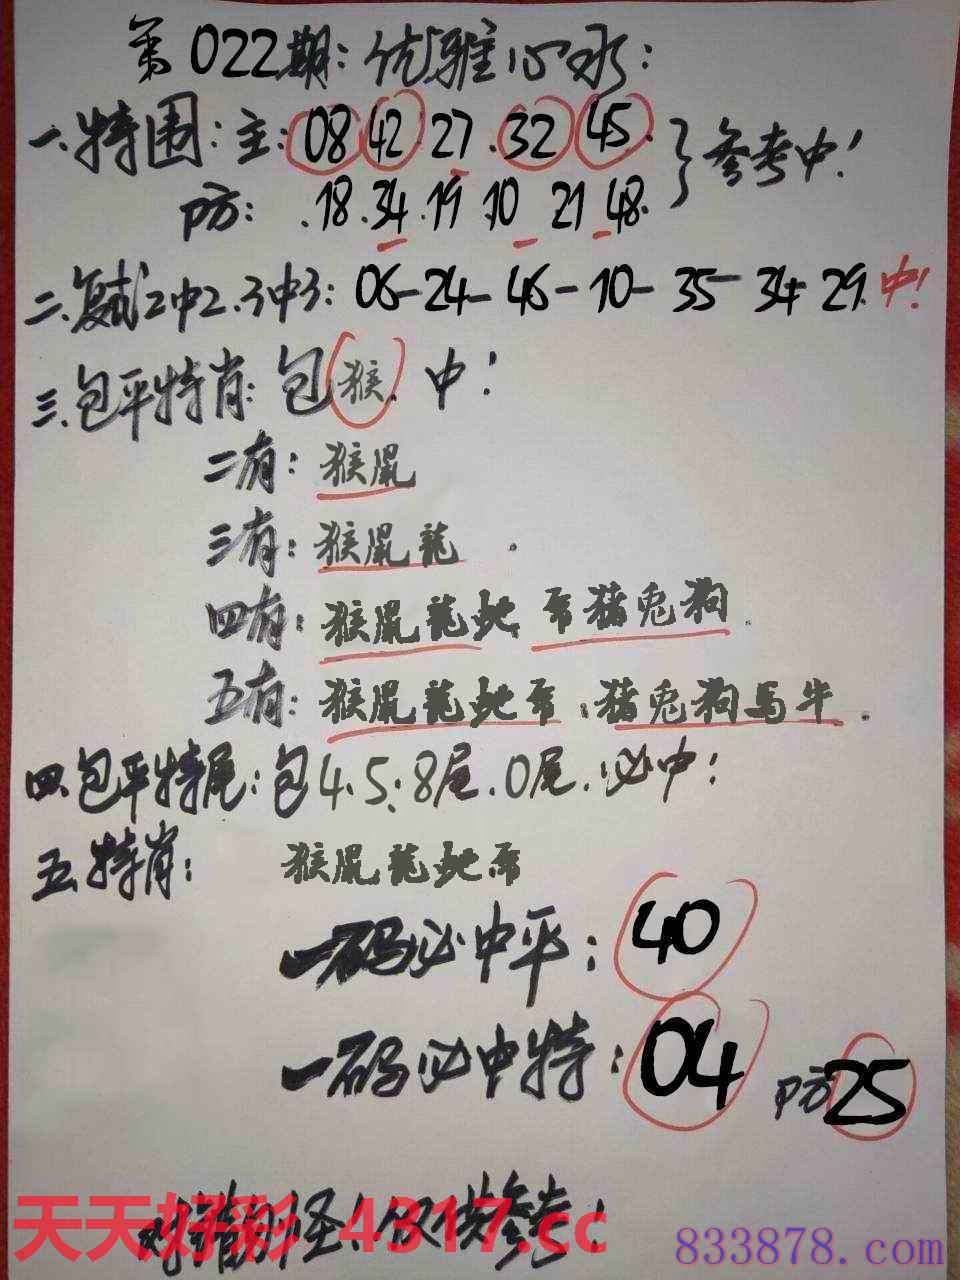 第022期:优雅心水:
一.特围:主:08 42 27.32 45.
防:.18.34.19 10 21 48.
}参考中!
二.复试2中2.3中3:06-24-46-10-35-34 29.中!
三.包平特肖:包猴.中!
二有:猴鼠
三有:猴鼠龍.
四有:猴鼠龍蛇 帝猪兔狗.
五有:猴鼠龍蛇帝.猪兔狗马牛.
四.包平特尾:包4.5.8尾.0尾.必中!
五.特肖:猴鼠龍蛇帝
一码必中平:40
一码必中特:04 防25
对错别怪!仅供参考!
天天好彩 4317.cc
833878.com